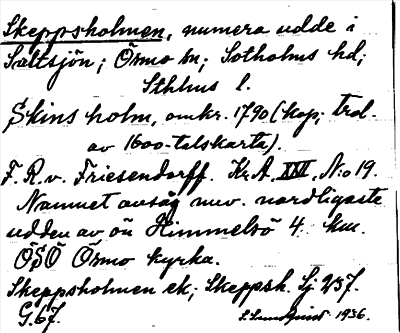 Skeppsholmen, numera udde i
Saltsjön; Ösmo sn; Sotholms hd;
Sthlms l.
Skins holm, omkr. 1790 (kop; trol.
av 1600-talskarta).
F. R. v. Friesendorff. Kr. A. XXVI, N:o 19.
Namnet avsåg nuv. nordligaste
udden av ön Himmelsö 4 km.
ÖSÖ Ösmo kyrka.
Skeppsholmen ek; Skeppsh. Lj 2/37.
G. 67. S. Lundquist 1936.